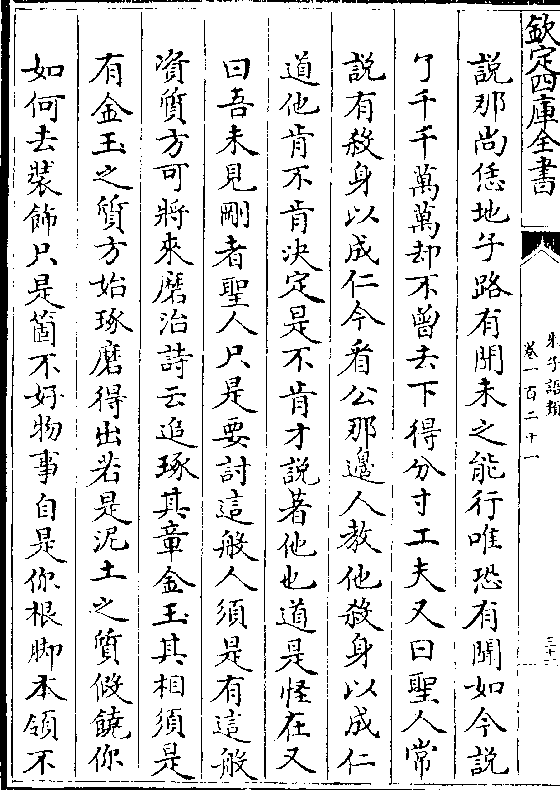 欽定四庫全書
朱子語類
卷一百二十一
三十二
說那尚恁地子路有聞未之能行唯恐有聞如今說
了千千萬萬却不曾去下得分寸工夫又曰聖人常
說有殺身以成仁今看公那邉人教他殺身以成仁
道他肯不肯决定是不肯才說著他也道是怪在又
曰吾未見剛者聖人只是要討這般人須是有這般
資質方可將來磨治詩云追琢其章金玉其相須是
有金玉之質方始琢磨得出若是泥土之質假饒你
如何去裝飾只是箇不好物事自是你根脚本領不